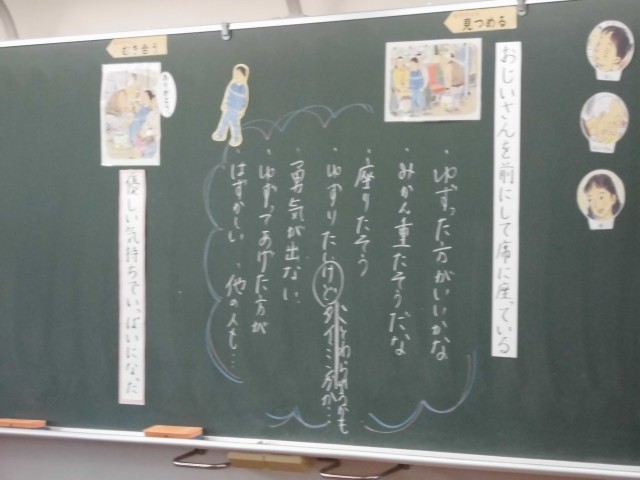 見つめる
おじいさんを前にして席に座っている
・ゆずった方がいいかな
・みかん重たそうだな
・座りたそう
・ゆずりたいけど
ことわられるかも
・勇気が出ない
・ゆずってあげた方が
はずかしい ・他の人も…
むき合う
優しい気持ちでいっぱいになった